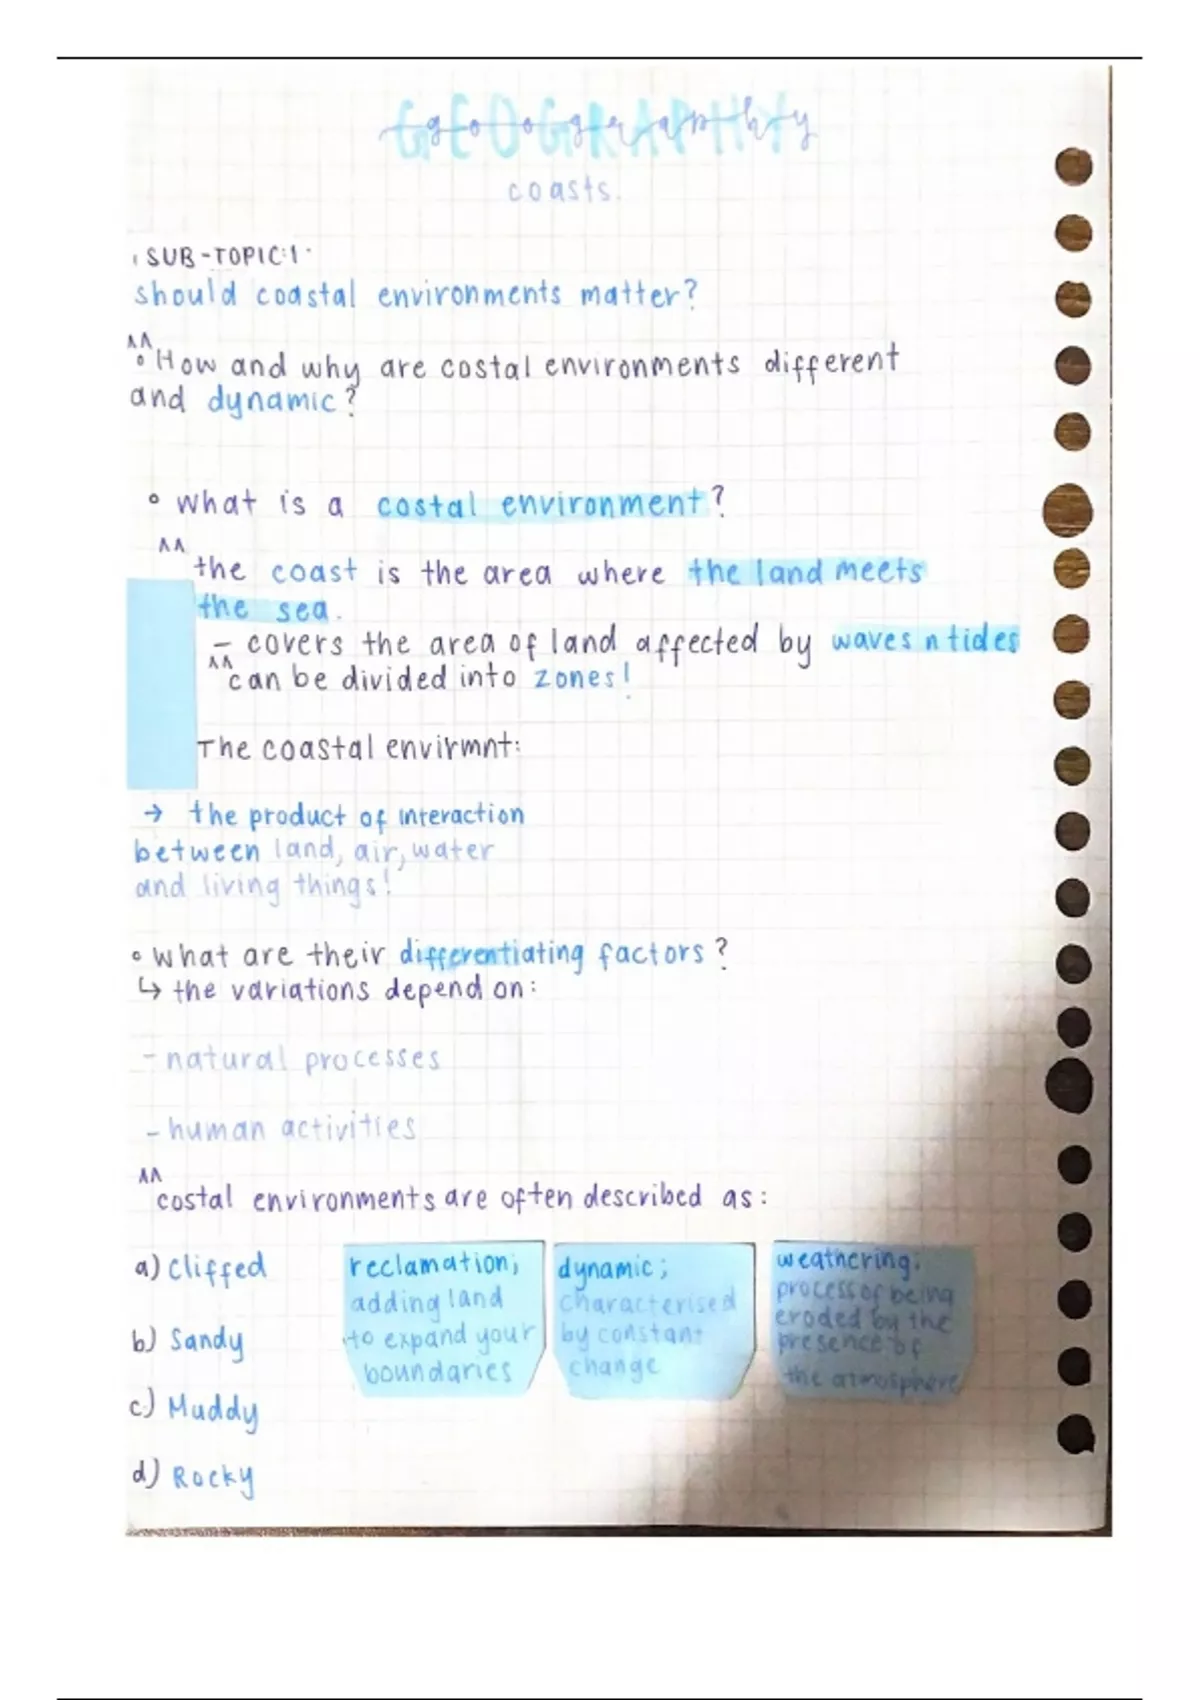 GEOGRAPHY
geography
coasts.
SUB-TOPIC:1
should coastal environments matter?
^^
° How and why are costal environments different
and dynamic?
° what is a costal environment?
^^
the coast is the area where the land meets
the sea.
- covers the area of land affected by waves n tides
^^
can be divided into zones!
The coastal envirmnt:
→ the product of interaction
between land, air, water
and living things!
° what are their differentiating factors?
↳ the variations depend on:
- natural processes
- human activities
^^
costal environments are often described as:
a) Cliffed
b) Sandy
c) Muddy
d) Rocky
reclamation;
adding land
to expand your
boundaries
dynamic;
characterised
by constant
change
weathering;
process of being
eroded by the
presence of
the atmosphere